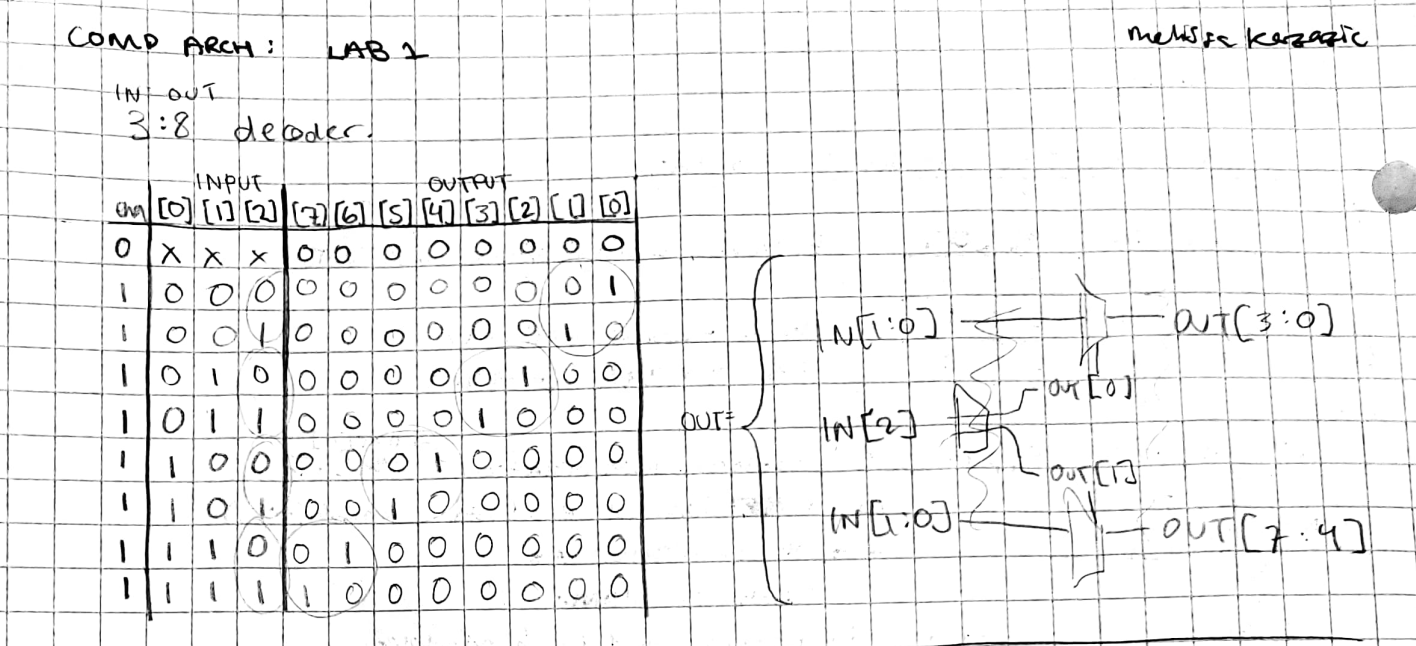 COMP ARCH: LAB 1
melissa kazazic
IN OUT
3:8 decoder.
INPUT OUTPUT
[0] [1] [2] [7] [6] [5] [4] [3] [2] [1] [0]
0 x x x 0 0 0 0 0 0 0 0
1 0 0 0 0 0 0 0 0 0 0 1
1 0 0 1 0 0 0 0 0 0 1 0
1 0 1 0 0 0 0 0 0 1 0 0
1 0 1 1 0 0 0 0 1 0 0 0
1 1 0 0 0 0 0 1 0 0 0 0
1 1 0 1 0 0 1 0 0 0 0 0
1 1 1 0 0 1 0 0 0 0 0 0
1 1 1 1 1 0 0 0 0 0 0 0
OUT=
IN[1:0] OUT[3:0]
OUT[0]
IN[2]
OUT[1]
IN[1:0] OUT[7:4]